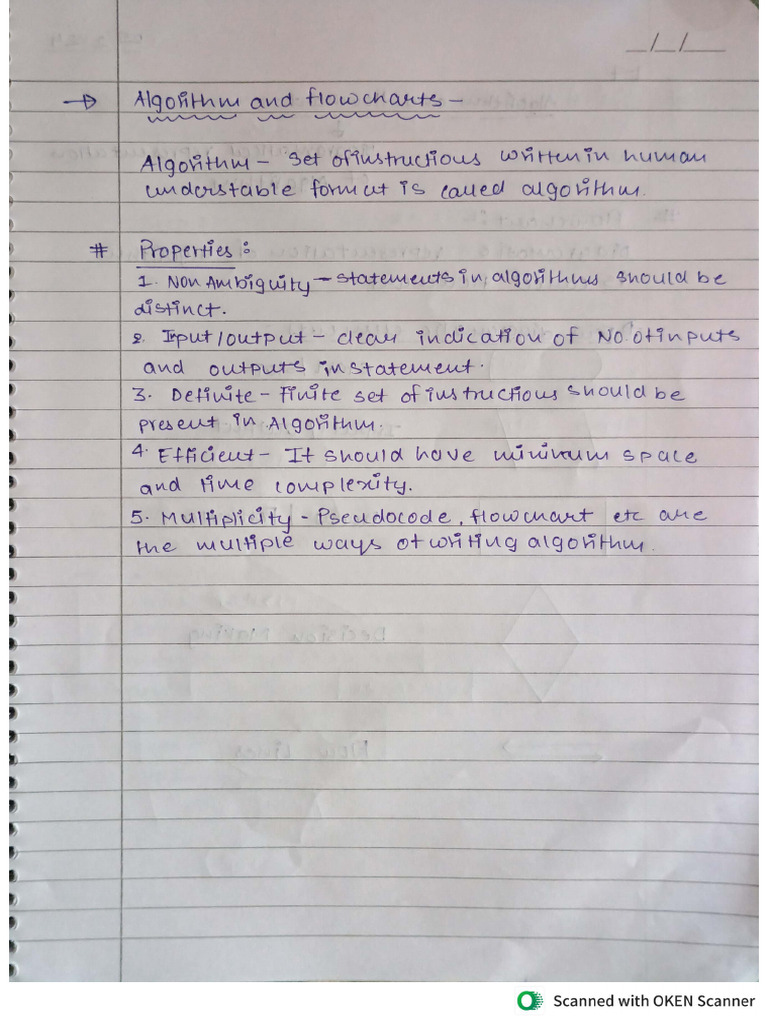 _/_/_
→ Algorithm and flowcharts -
Algorithm - Set of instructions written in human
understable format is called algorithm.
# Properties :
1. Non Ambiguity - Statements in algorithms should be
distinct.
2. Input/output - clear indication of No. of inputs
and outputs in statement.
3. Definite - Finite set of instructions should be
present in Algorithm.
4. Efficient - It should have minimum space
and time complexity.
5. Multiplicity - Pseudocode, flowchart etc are
the multiple ways of writing algorithm.
Decision Making
Flow Lines
Scanned with OKEN Scanner